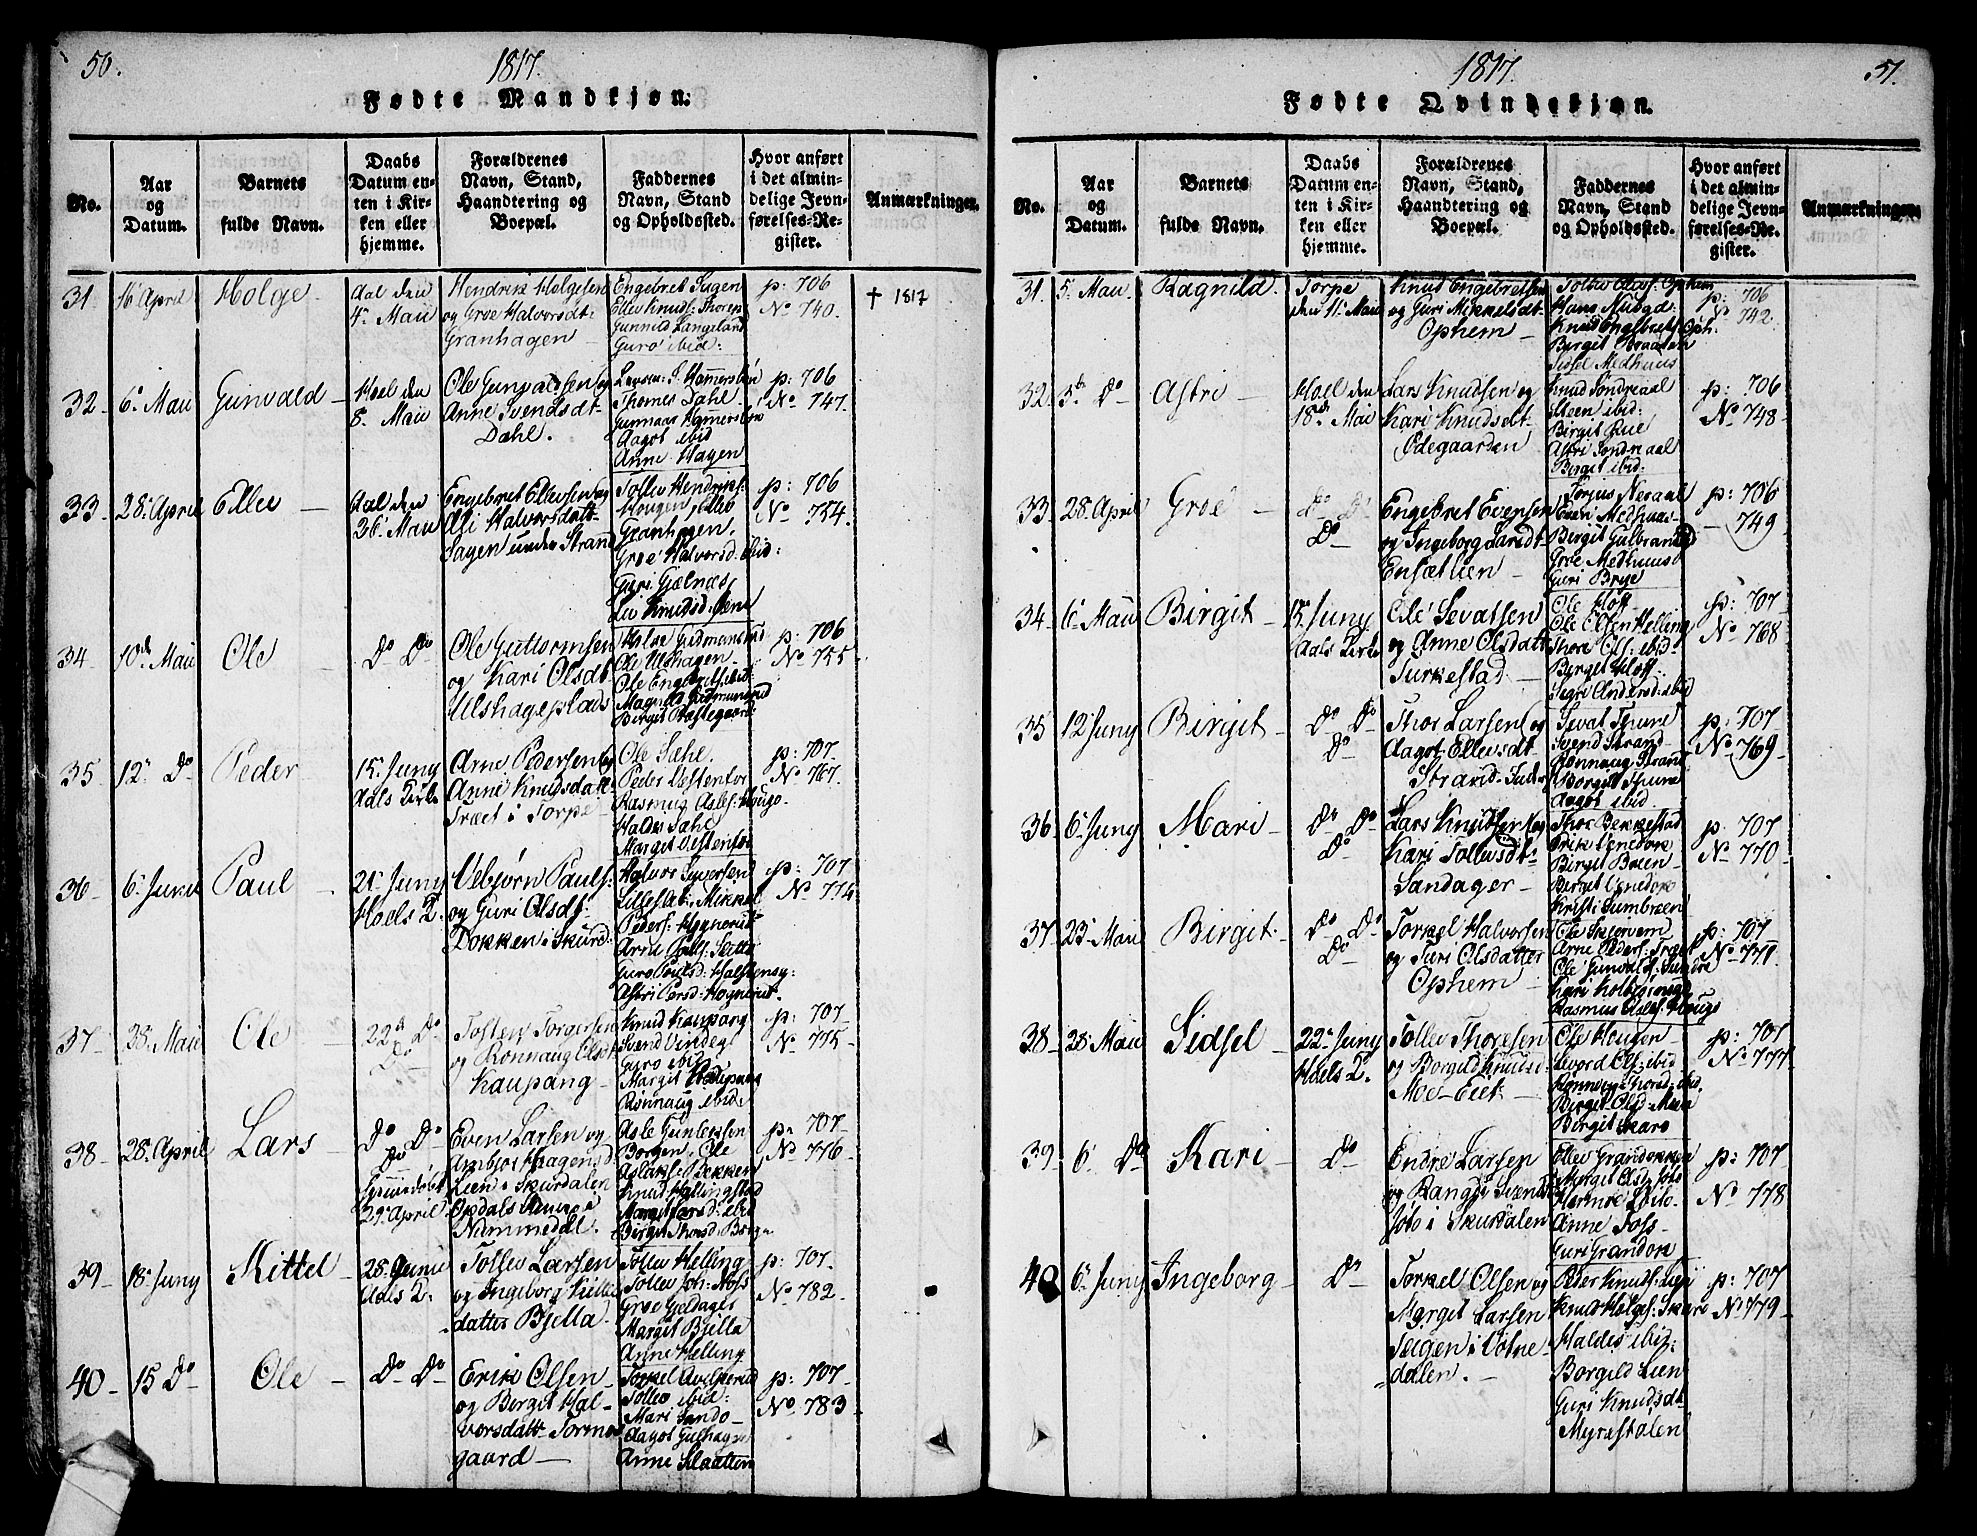 50.
1817.
Fødte Mandkjøn.
No.
Aar
og
Datum.
Barnets
fulde Navn.
Daabs
Datum en-
ten i Kir-
ken eller
hjemme.
Forældrenes
Navn, Stand,
Haandtering og
Boepæl.
Faddernes
Navn, Stand
og Opholdssted.
Hvor anført
i det almin-
delige Jevn-
førelses-Re-
gister.
Anmærkninger.
31
16 April
Holge
Aal den
4 Mai
Hendrik Holgesen
og Groe Halvorsdt:
Granhagen
Engebret
Ellev Knuds: Thorep
Gunnild Langeland
Guro ibid:
p: 706
No 740.
† 1817
32
6 Mai
Gunvald
Hoel den
8. Mai
Ole Gunvaldsen og
Anne Svendsdt
Dahl.
Thomes Dahl
Gunnar Hamersbøn
Aagot ibid
Anne Hagen
p: 706
No 747.
33
28 April
Ellev
Aal den
26 Mai
Engebret Ellevsen og
Asli Halvorsdatt
Hagen under Strand
Tollev Hendriks:
Hougen, Ellev
Granhagen
Groe Halvorsd. ibid:
Guri Gjelnæs
Liv Knudsd:
p: 706
No 754.
34
10de Mai
Ole
Do Do
Ole Guttormsen
og Kari Olsdt
Ulshageplads
Ole Ulshagen
Ole Engebrets ibid:
Birgit
p: 706
No 755
35
12 Do
Peder
15. Juny
Aals Kirke
Arne Pedersen og
Anne Knudsdatt
Træet i Torpe
Ole Sahl.
Peder Vestenfor
Rasmus Aslef: Hougo.
Haldis Sahl
Margit Vestenfor
p: 707.
No 767.
36
6 Juni
Paul
21. Juny
Hoels K.
Vebjørn Pauls:
og Guri Olsdt:
Dokken i Skurd:
Halvor Siversen
Lilleslat: Mikkel
Peders: Hognerud
Arne
Guro Poulsd: Halstensg:
Astri Persd: Hognerud
p: 707
No 774
37
23. Mai
Ole
22d Do
Do
Tosten Torgersen
og Rønnaug Olsdt
Kaupang
Knud Kaupang
Svend Vindeg
Guro ibid
Margit Kaupang
Rønnaug ibid:
p: 707
No 775
38
28. April
Lars
Do Do
Do
29 April
Even Larsen og
Lien i Skurdalen
Opdals Annex i
Nummedal.
Asle Gunleksen
Borgen, Ole
Aslaks: Bækken
Knud Hallingstad
Margit Larsd: ibid
Birgit Thorsd: Borge
p: 707
No 776
39
18 Juny
Kittel
28 Junii
Aals K.
Tollev Larsen
og Ingeborg Kittels
datter Bjella.
Tollev Helling
Tollev Joh: Noss
Groe Geldager
Margit Bjella
Anne Helling
p: 707.
No 782.
40
15 Do
Ole
Do Do
Erik Olsen
og Bergit Hal-
vorsdatt Tormo
gaard
Torkel
Tollev ibid:
Mari Sando
Aagot Gulhagen
Anne Slaatten
p: 707.
No 783.
1817.
51.
Fødte Qvindekjøn.
No.
Aar
og
Datum.
Barnets
fulde Navn.
Daabs
Datum en-
ten i Kir-
ken eller
hjemme.
Forældrenes
Navn, Stand,
Haandtering og
Boepæl.
Faddernes
Navn, Stand
og Opholdssted.
Hvor anført
i det almin-
delige Jevn-
førelses-Re-
gister.
Anmærkninger.
31.
5. Mai.
Ragnild.
Torpe
den 11 Mai
Knud Engebretsen
og Guri Mikkelsdt
Ophem
Tollev Olass. Ophem
Knud Engebrets: Oph:
Birgit Braaten
Sissel Medhuus
p: 706
No 742.
32
5te Do
Astri
Hoel den
18de Mai
Lars Knudsen og
Kari Knudsdt
Ødegaarden
Knud Søndreaal
Steen ibid:
Birgit Rue
Astri Søndreaal
Birgit ibid:
p: 706
No 748
33
28 April
Groe
Do Do
Do
Engebret Evensen
og Ingeborg Larsdt
Ensætlien
Torjus Nesaal
Even Medhuus
Birgit Gulbrands
Groe Medhuus
Guri Brye
p: 706
749
34
6 Mai
Birgit
15. Juny
Aals Kirke
Ole Sevatsen
og Anne Olsdatt
Turkestad
Ole Kloft
Ole Olsen Helling
Thore Ols: ibid:
Birgit Kloft
Sigri Andersd: ibid
p: 707
No 768
35
12 Juny
Birgit
Do Do
Do
Thor Larsen og
Aagot Ellevsdt
Strand
Sevat Thune
Svend Strand
Rønnaug Strand
Borgit Thune
Aagot ibid.
p: 707
No 769
36
6 Juny
Mari
Do Do
Do
Lars Knudsen og
Kari Tollevsdt:
Sandager
Thor Bekkestad
Erik Venedok
Birgit Breen
Birgit Venedok
Kristi Sumbreen
p. 707
No 770
37
23. Mai
Birgit.
Do Do
Do
Torkel Halvorsen
og Turi Olsdatter
Ophem
Ole Skjervem
Arne Peders: Træet
Ole Gunvalds: Sundre
Rasmus Aslef: Hougo
p: 707
No 771
38
28 Mai
Sidsel
22. Juny
Hoels K.
Tollev Thoresen
og Borgild Knudsd:
Moe-Eiet
Ole Hougen
Levord Ols: ibid
Rønnev Thorsd: ibid
Birgit Olsd: Moen
Borgit Skaro
p: 707
No 777
39
6 Do
Kari
Do
Endre Larsen
og Rangdi Svendsdt
i Skurdalen
Ellev Grandokken
Margit Olsd:
Anne Foss
Guri Grandok
p: 707
No 778
40
6 Juny
Ingeborg
Do
Torkel Olsen og
Margit Larsen
Hagen i Votne
dalen.
Peder Knuds: Lien
Knud Holges: Skaro
Haldis ibid:
Borgild Lien
Guri Knudsdt
Myrestølen
p: 707
No 779